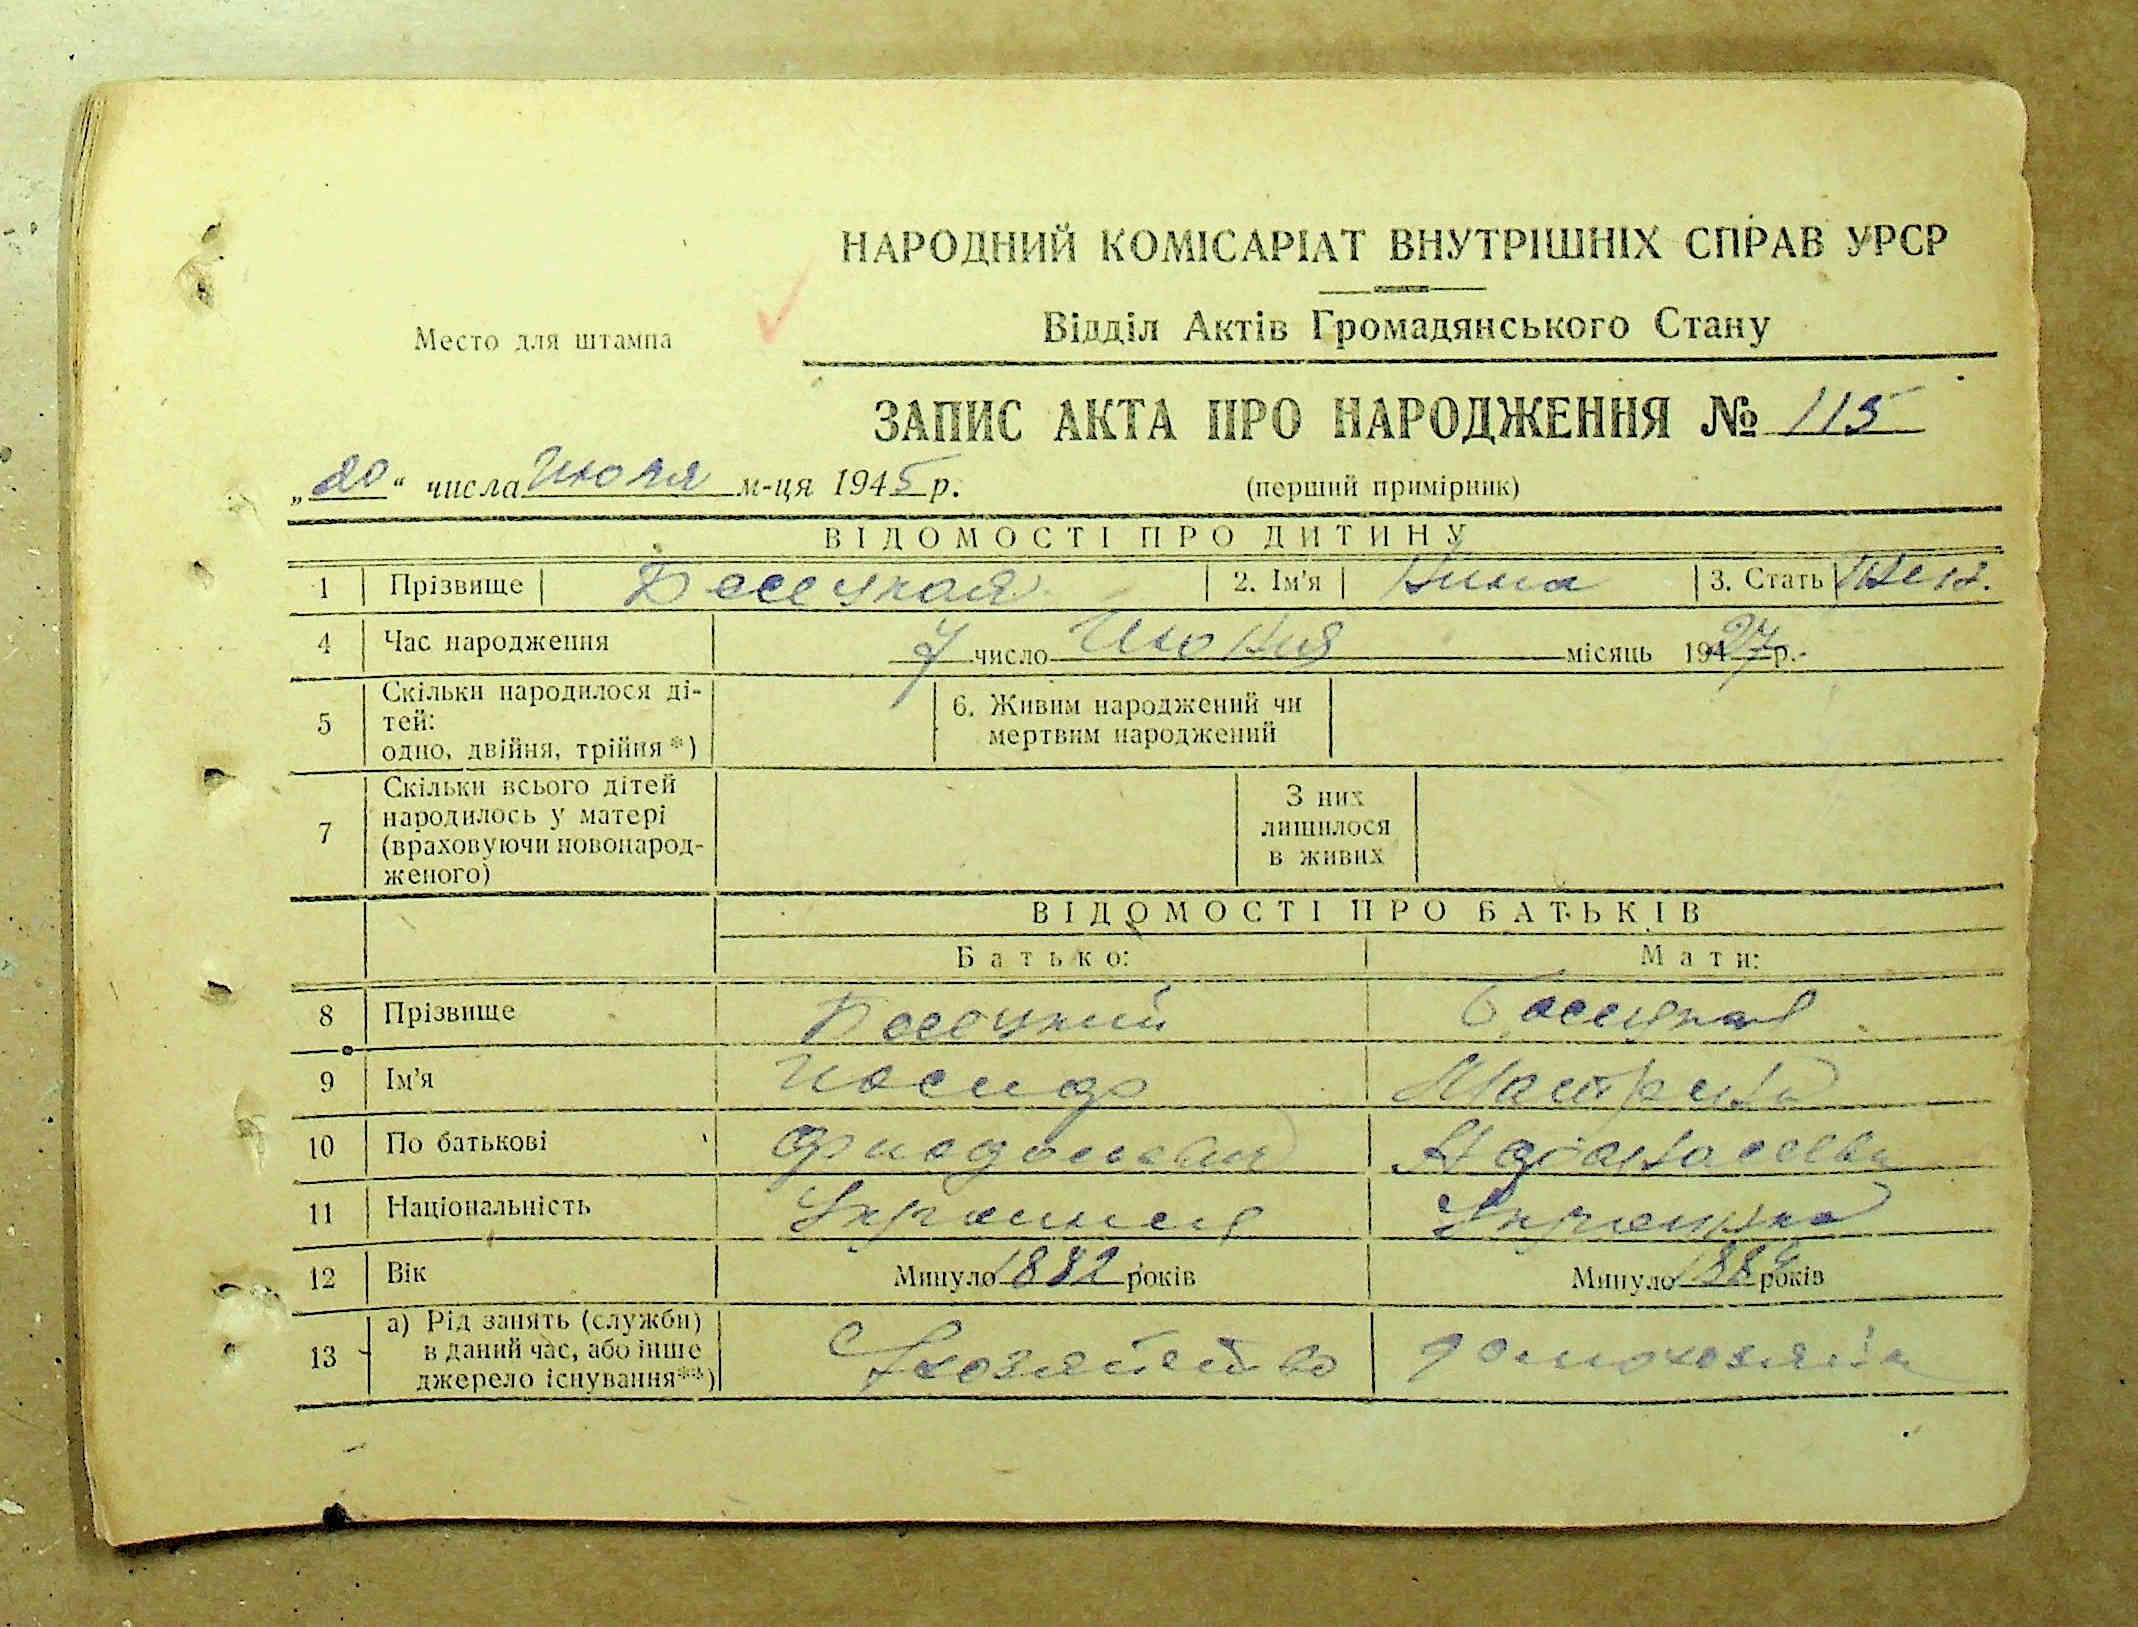 НАРОДНИЙ КОМІСАРІАТ ВНУТРІШНІХ СПРАВ УРСР
Место для штампа
Відділ Актів Громадянського Стану
ЗАПИС АКТА ПРО НАРОДЖЕННЯ № 115
„20“ числа Июля м-ця 1945 р. (перший примірник)
ВІДОМОСТІ ПРО ДИТИНУ
1 Прізвище Бесецкая 2. Ім'я Нина 3. Стать жен.
4 Час народження 7 число Июня місяць 1927 р.
5 Скільки народилося ді-
тей:
одно, двійня, трійня *)
6. Живим народжений чи
мертвим народжений
7 Скільки всього дітей
народилось у матері
(враховуючи новонарод-
женого)
З них
лишилося
в живих
ВІДОМОСТІ ПРО БАТЬКІВ
Батько: Мати:
8 Прізвище Бесецкий Бесецкая
9 Ім'я Иосиф
10 По батькові
11 Національність Украинец Украинка
12 Вік Минуло 1882 років Минуло 1884 років
13 а) Рід занять (служби)
в даний час, або інше
джерело існування **)
хозяйство домохозяйка